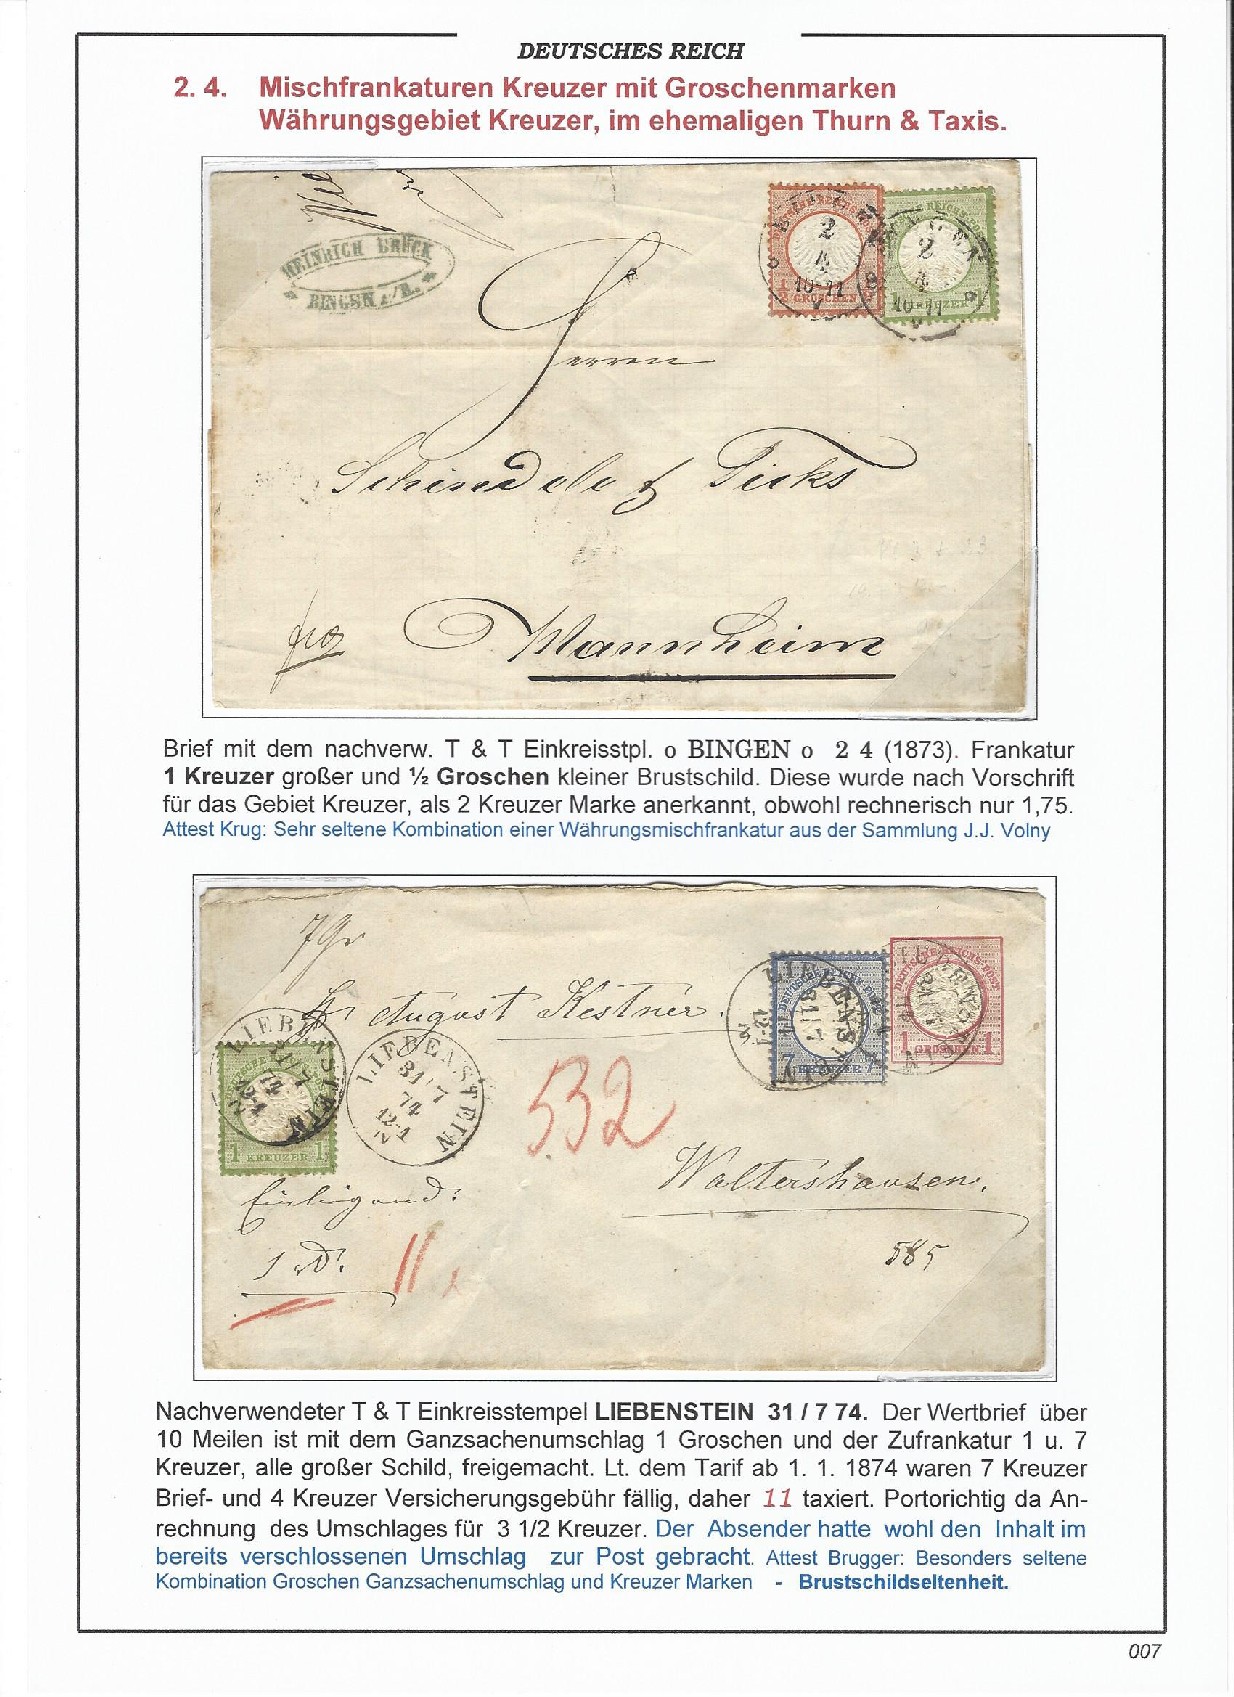 DEUTSCHES REICH
2. 4. Mischfrankaturen Kreuzer mit Groschenmarken
Währungsgebiet Kreuzer, im ehemaligen Thurn & Taxis.
HEINRICH BRUCK
BINGEN a/R.
2
4
10-11
V
½ GROSCHEN
BINGEN
2
4
10-11
V
KREUZER
Herren
&
Mannheim
Brief mit dem nachverw. T & T Einkreisstpl. o BINGEN o 2 4 (1873). Frankatur
1 Kreuzer großer und ½ Groschen kleiner Brustschild. Diese wurde nach Vorschrift
für das Gebiet Kreuzer, als 2 Kreuzer Marke anerkannt, obwohl rechnerisch nur 1,75.
Attest Krug: Sehr seltene Kombination einer Währungsmischfrankatur aus der Sammlung J.J. Volny
7 Gr
August Kestner.
LIEBENSTEIN
31/7
7 KREUZER 7
1 GROSCHEN 1
LIEBENSTEIN
1 KREUZER 1
LIEBENSTEIN
31/7
74
12-1
N
532
Waltershausen.
585
11
Nachverwendeter T & T Einkreisstempel LIEBENSTEIN 31 / 7 74. Der Wertbrief über
10 Meilen ist mit dem Ganzsachenumschlag 1 Groschen und der Zufrankatur 1 u. 7
Kreuzer, alle großer Schild, freigemacht. Lt. dem Tarif ab 1. 1. 1874 waren 7 Kreuzer
Brief- und 4 Kreuzer Versicherungsgebühr fällig, daher 11 taxiert. Portorichtig da An-
rechnung des Umschlages für 3 1/2 Kreuzer. Der Absender hatte wohl den Inhalt im
bereits verschlossenen Umschlag zur Post gebracht. Attest Brugger: Besonders seltene
Kombination Groschen Ganzsachenumschlag und Kreuzer Marken - Brustschildseltenheit.
007